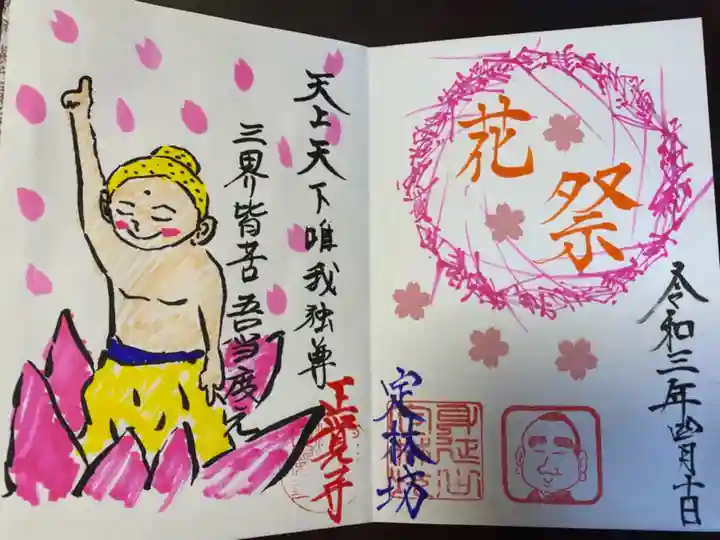 花祭
令和三年四月十日
定林坊
天上天下唯我独尊
三界皆苦吾当度之
正覚寺